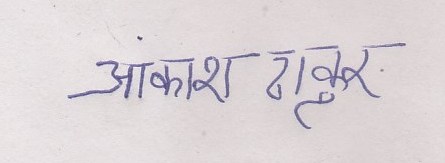 आकाश ठाकुर